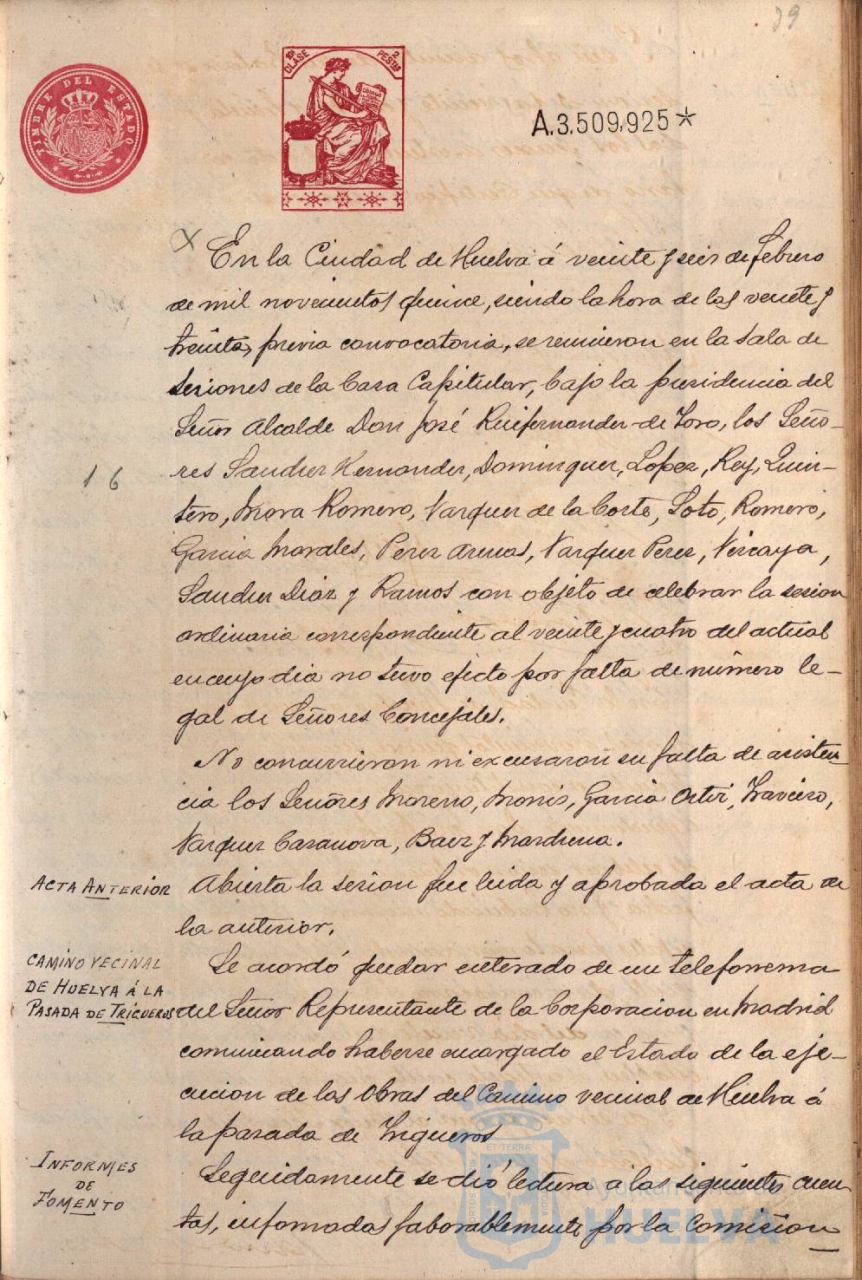 39
TIMBRE DEL ESTADO
1ª CLASE 2 PESTAS
A.3.509,925*
En la Ciudad de Huelva á veinte y seis de Febrero
de mil novecientos quince, siendo la hora de las veinte y
treinta, previa convocatoria, se reunieron en la Sala de
sesiones de la Casa Capitular, bajo la presidencia del
Señor Alcalde Don José Ruifernandez de Toro, los Seño-
res Sanchez Hernandez, Dominguez, Lopez, Rey, Quin-
tero, Mora Romero, Vazquez de la Corte, Soto, Romero,
Garcia Morales, Perez Arenas, Vazquez Perez, Vizcaya,
Sanchez Diaz y Ramos con objeto de celebrar la sesion
ordinaria correspondiente al veinte y cuatro del actual
en cuyo dia no tuvo efecto por falta de número le-
gal de Señores Concejales.
16
No concurrieron ni excusaron su falta de asisten-
cia los Señores Moreno, Monis, Garcia Ortiz, Travieso,
Vazquez Casanova, Baez y Marchena.
ACTA ANTERIOR
Abierta la sesion fue leida y aprobada el acta de
la anterior.
CAMINO VECINAL
DE HUELVA Á LA
PASADA DE TRIGUEROS
Se acordó quedar enterado de un telefonema
del Señor Representante de la Corporacion en Madrid
comunicando haberse encargado el Estado de la eje-
cucion de las obras del Camino vecinal de Huelva á
la pasada de Trigueros
INFORMES
DE
FOMENTO
Seguidamente se dió lectura á las siguientes cuen-
tas, informadas faborablemente por la Comision
Ayuntamiento de
HUELVA